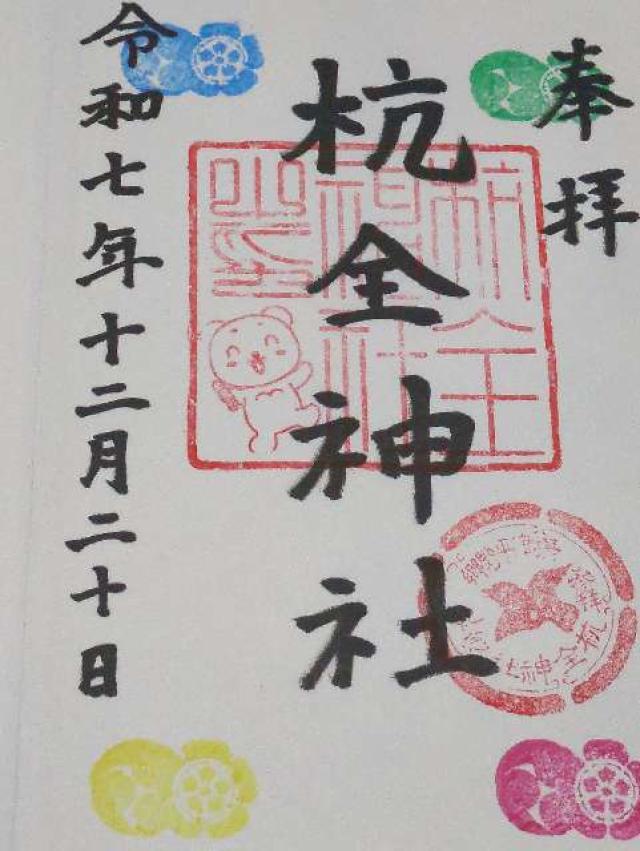 奉拝
杭全神社
令和七年十二月二十日
杭全神社之印